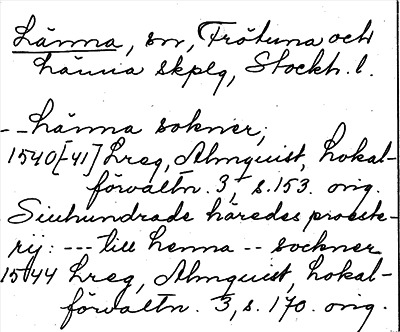 Länna, sn, Frötuna och
Länna skplg, Stockh. l.
-- Länna sokner,
1540[-41] Lreg, Almquist, Lokal-
förvaltn. 3, s. 153. orig.
Siuhundrade häredes proeste-
rij: --- till Lenna -- sockner
1544 Lreg, Almquist, Lokal-
förvaltn. 3, s. 170. orig.